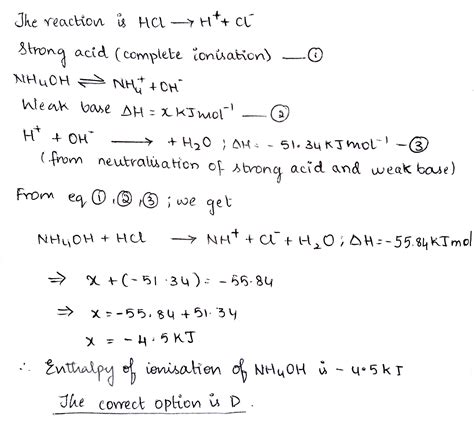 The reaction is HCl ⟶ H⁺ + Cl⁻
Strong acid (complete ionisation) —①
NH₄OH ⇌ NH₄⁺ + OH⁻
Weak base ΔH = x KJmol⁻¹ —②
H⁺ + OH⁻ ⟶ + H₂O ; ΔH = - 51.34 KJ mol⁻¹ —③
(from neutralisation of strong acid and weak base)
From eq ①,②,③ ; we get
NH₄OH + HCl ⟶ NH⁺ + Cl⁻ + H₂O ; ΔH = -55.84 KJ mol
⇒ x + (-51.34) = -55.84
⇒ x = -55.84 + 51.34
x = -4.5 KJ
∴ Enthalpy of ionisation of NH₄OH is - 4.5 kJ
The correct option is D.